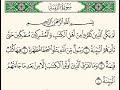 سُورَةُ البَيِّنَةِ
بِسْمِ اللَّهِ الرَّحْمَٰنِ الرَّحِيمِ
لَمْ يَكُنِ الَّذِينَ كَفَرُوا مِنْ أَهْلِ الْكِتَابِ وَالْمُشْرِكِينَ مُنفَكِّينَ حَتَّىٰ
تَأْتِيَهُمُ الْبَيِّنَةُ رَسُولٌ مِّنَ اللَّهِ يَتْلُو صُحُفًا مُّطَهَّرَةً فِيهَا كُتُبٌ
قَيِّمَةٌ وَمَا تَفَرَّقَ الَّذِينَ أُوتُوا الْكِتَابَ إِلَّا مِن بَعْدِ مَا جَاءَتْهُمُ